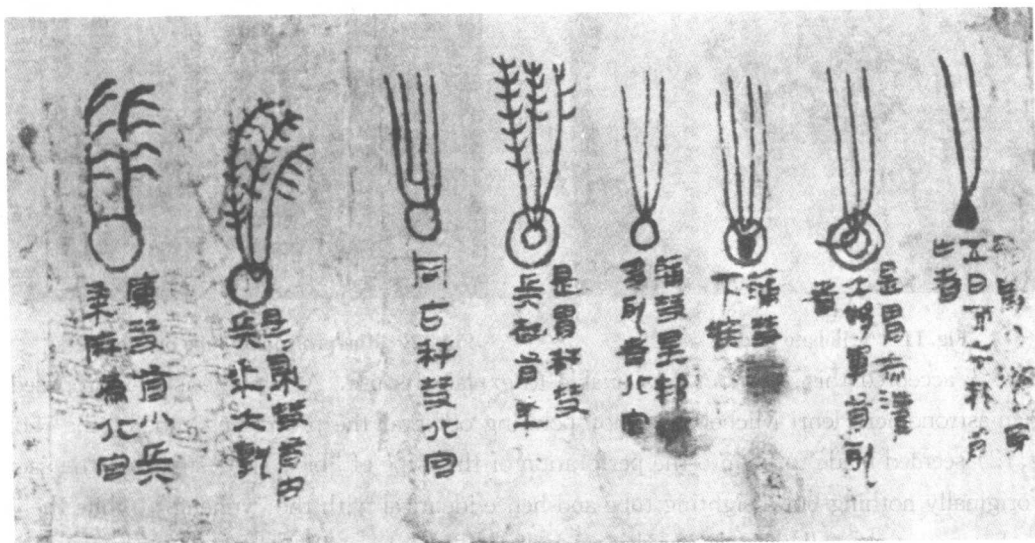 五日
者
是胃赤灌
大將軍有死
者
蒲彗
下疾
蒲彗星邦
多死者北宮
是胃秆彗
兵起有年
同占秆彗北宮
是是帚彗有內
兵年大孰
厲彗有小兵
黍麻為北宮